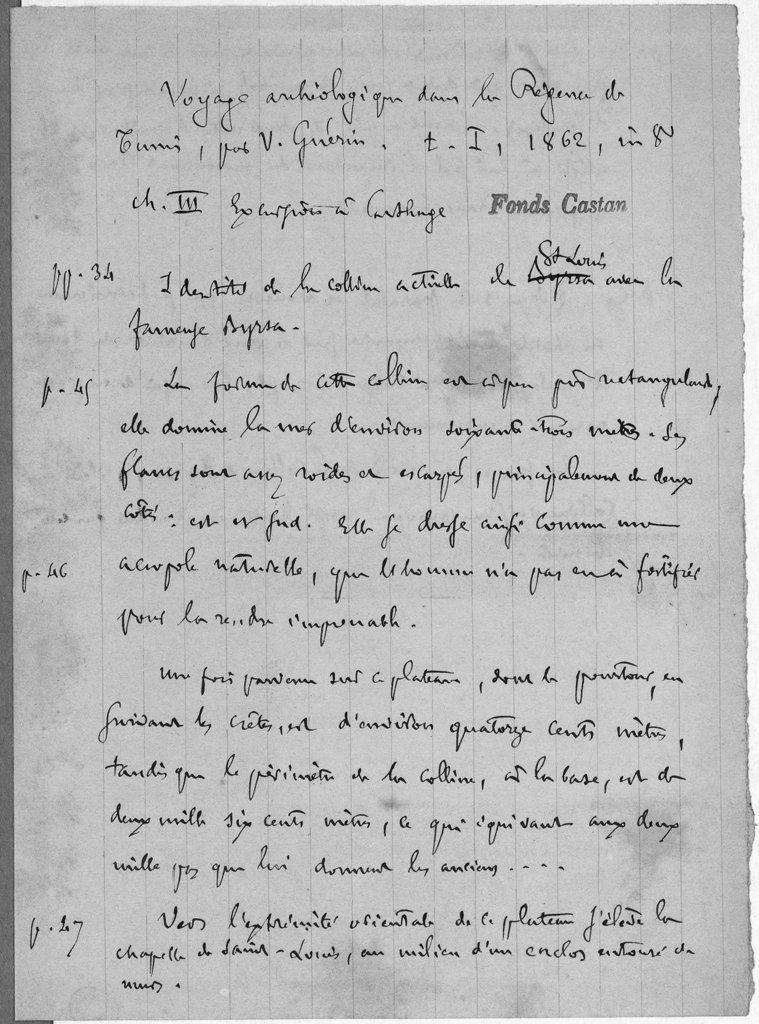 Voyage archéologique dans la Régence de
Tunis, par V. Guérin. t. I, 1862, in 8°
ch. III Excursion à Carthage Fonds Castan
pp. 34 Identité de la colline actuelle de St Louis avec la
fameuse Byrsa.
p. 45 La forme de cette colline est à peu près rectangulaire,
elle domine la mer d'environ soixante-trois mètres. Ses
flancs sont assez roides et escarpés, principalement de deux
côtés : est et sud. Elle se dresse ainsi comme une
p. 46 acropole naturelle, que l'homme n'a pas eu à fortifier
pour la rendre imprenable.
Une fois parvenu sur ce plateau, dont le pourtour, en
suivant les crêtes, est d'environ quatorze cents mètres,
tandis que le périmètre de la colline, à la base, est de
deux mille six cents mètres, ce qui équivaut aux deux
mille pas que lui donnent les anciens ....
p. 47 Vers l'extrémité orientale de ce plateau s'élève la
chapelle de Saint-Louis, au milieu d'un enclos entouré de
murs.